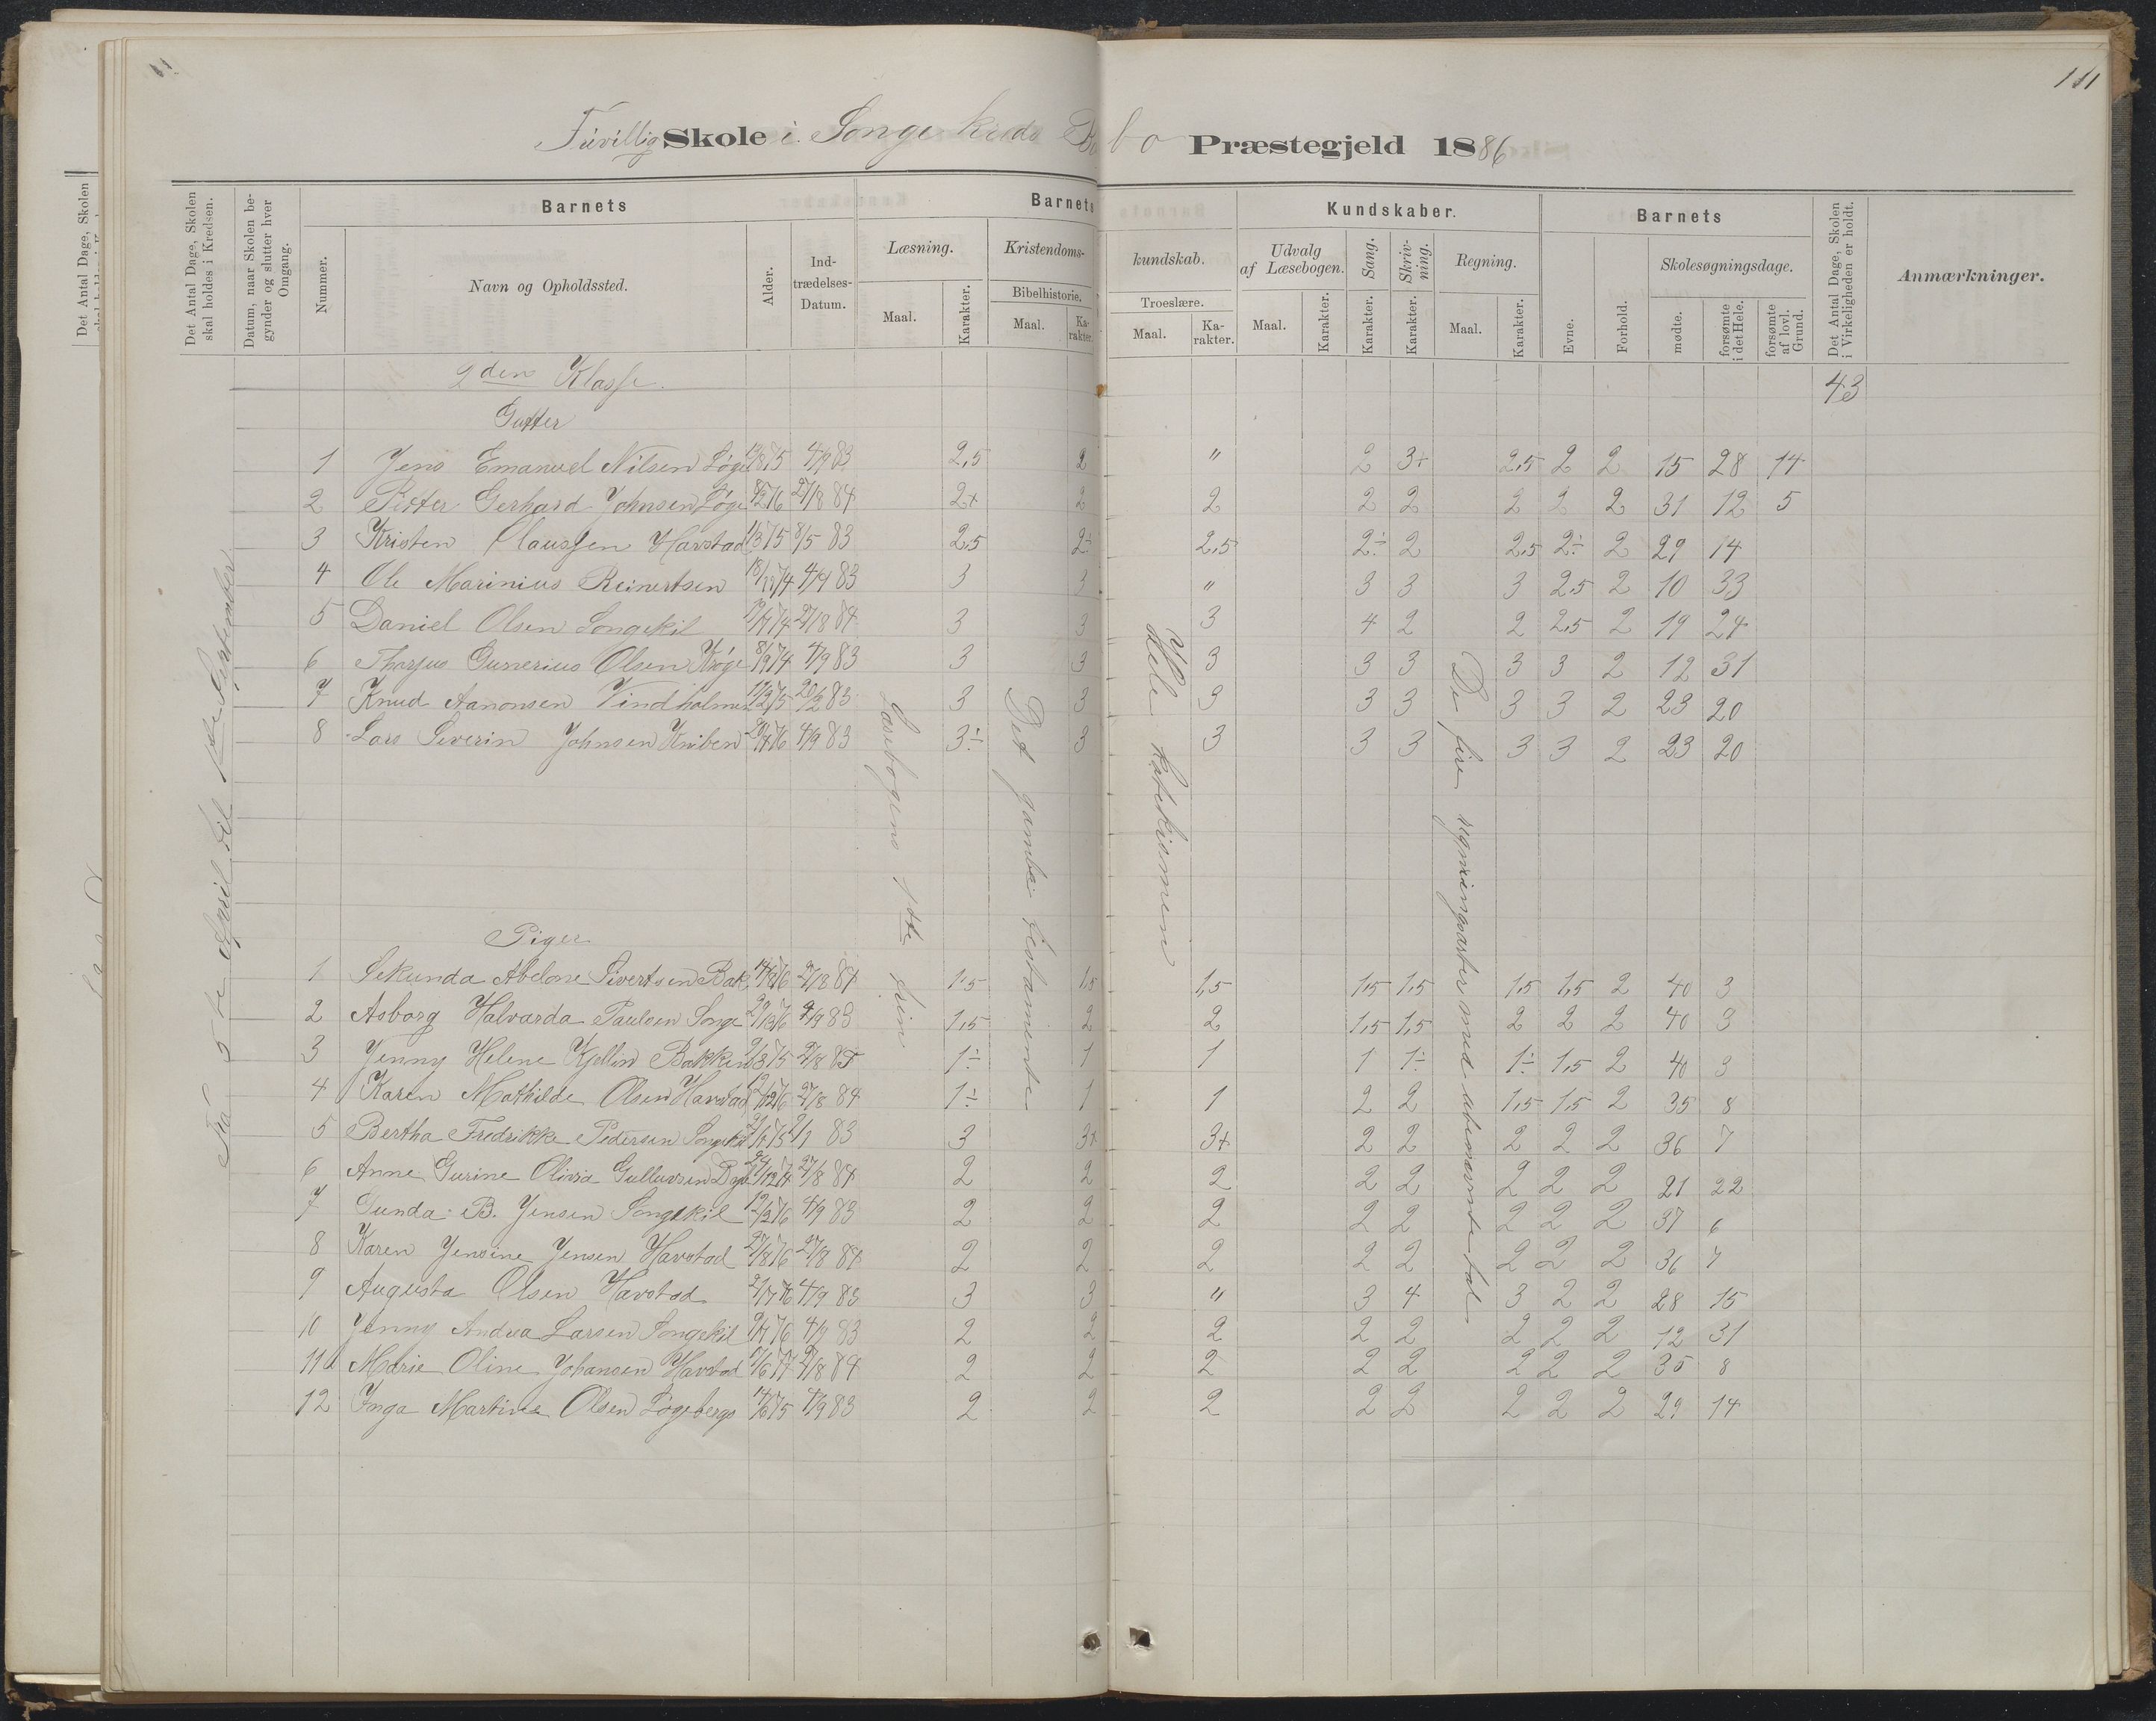 111
Frivillig Skole i Songe kreds Præstegjeld 1886
Det Antal Dage, Skolen skal holdes i Kredsen.
Datum, naar Skolen begynder og slutter hver Omgang.
Barnets
Nummer.
Navn og Opholdssted.
Alder.
Indtrædelses-Datum.
Barnets
Læsning.
Maal.
Karakter.
Kristendoms-
Bibelhistorie.
Maal.
Karakter.
kundskab.
Troeslære.
Maal.
Karakter.
Kundskaber.
Udvalg af Læsebogen.
Maal.
Karakter.
Sang.
Karakter.
Skrivning.
Karakter.
Regning.
Maal.
Karakter.
Barnets
Evne.
Forhold.
Skolesøgningsdage.
mødte.
forsømte i det Hele.
forsømte af lovl. Grund.
Det Antal Dage, Skolen i Virkeligheden er holdt.
Anmærkninger.
2den Klasse.
43
Gutter
1 Jens Emanuel Nilsen 4/9 83 2,5 2 " 2 3+ 2,5 2 2 15 28 14
2 Petter Gerhard Johnsen 27/8 84 2+ 2 2 2 2 2 2 2 31 12 5
3 Kristen Claussen Havstad 8/5 83 2,5 2÷ 2,5 2÷ 2 2,5 2÷ 2 29 14
4 Ole Marinius Reinertsen 4/9 83 3 3 " 3 3 3 2,5 2 10 33
5 Daniel Olsen Songekil 27/8 84 3 3 3 4 2 2 2,5 2 19 24
6 Gunerius Olsen 4/9 83 3 3 3 3 3 3 3 2 12 31
7 Knud Aanonsen Vindholmen 83 3 3 3 3 3 3 3 2 23 20
8 Lars Severin Johnsen Kniben 4/9 83 3÷ 3 3 3 3 3 3 2 23 20
5te April til 1ste September
Læsebogens 1ste trin
Det gamle testamente
Hele katekismen
De fire regningsarter med ubenævnte tal
Piger
1 Sekunda Abelone Sivertsen Bak. 27/8 84 1,5 1,5 1,5 1,5 1,5 1,5 1,5 2 40 3
2 Asborg Halvarda Paulsen Songe 4/9 83 1,5 2 2 1,5 1,5 2 2 2 40 3
3 Jenny Helene Kjellin Bakken 1÷ 1 1 1 1÷ 1÷ 1,5 2 40 3
4 Karen Mathilde Olsen Havstad 27/8 84 1÷ 1 1 2 2 1,5 1,5 2 35 8
5 Bertha Fredrikke Pedersen Songekil 83 3 3+ 3+ 2 2 2 2 2 36 7
6 Anne Gurine Olivia 27/8 84 2 2 2 2 2 2 2 2 21 22
7 Gunda B. Jensen Songekil 4/9 83 2 2 2 2 2 2 2 2 37 6
8 Karen Jensine Jensen Havstad 27/8 76 27/8 84 2 2 2 2 2 2 2 2 36 7
9 Augusta Olsen Havstad 4/9 83 3 3 " 3 4 3 2 2 28 15
10 Jenny Andrea Larsen Songekil 4/9 83 2 2 2 2 2 2 2 2 12 31
11 Marie Oline Johansen Havstad 27/8 84 2 2 2 2 2 2 2 2 35 8
12 Inga Martine Olsen 4/9 83 2 2 2 2 2 2 2 2 29 14